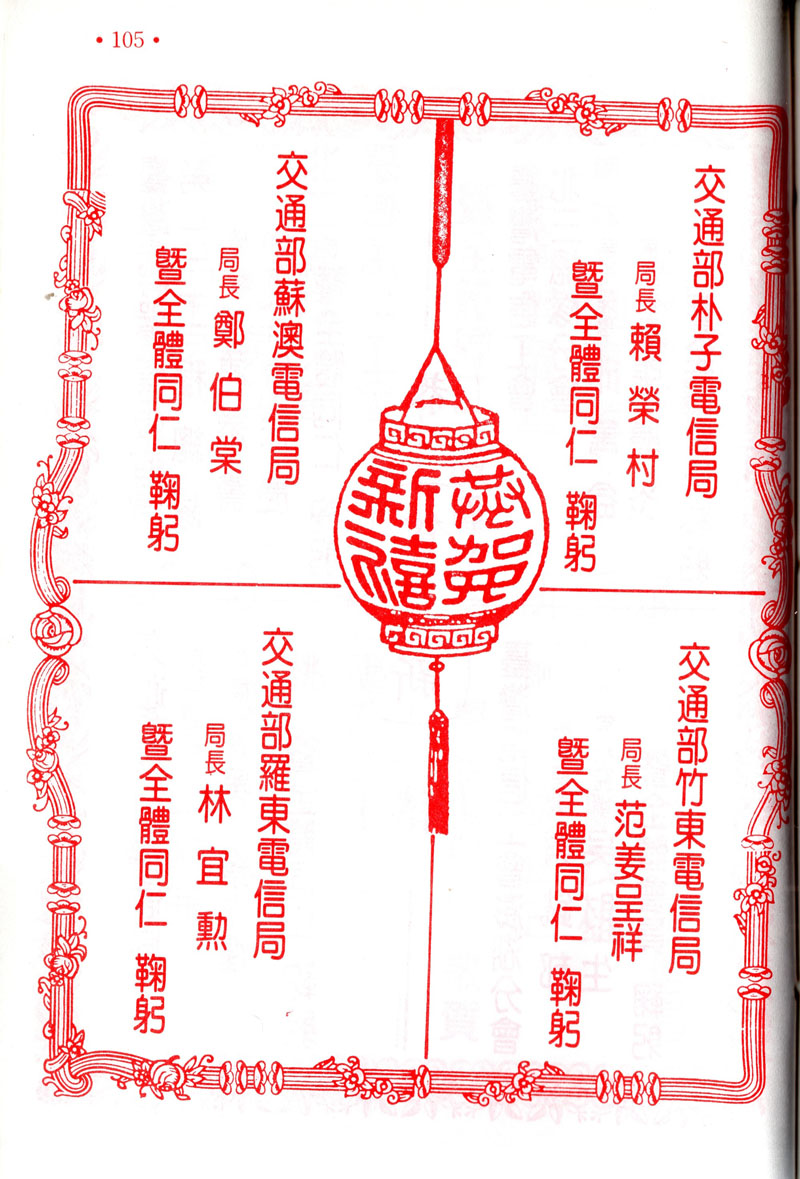 • 105 •
交通部朴子電信局
局長 賴榮村
暨全體同仁 鞠躬
恭賀
新禧
交通部蘇澳電信局
局長 鄭伯棠
暨全體同仁 鞠躬
交通部竹東電信局
局長 范姜呈祥
暨全體同仁 鞠躬
交通部羅東電信局
局長 林宜勳
暨全體同仁 鞠躬